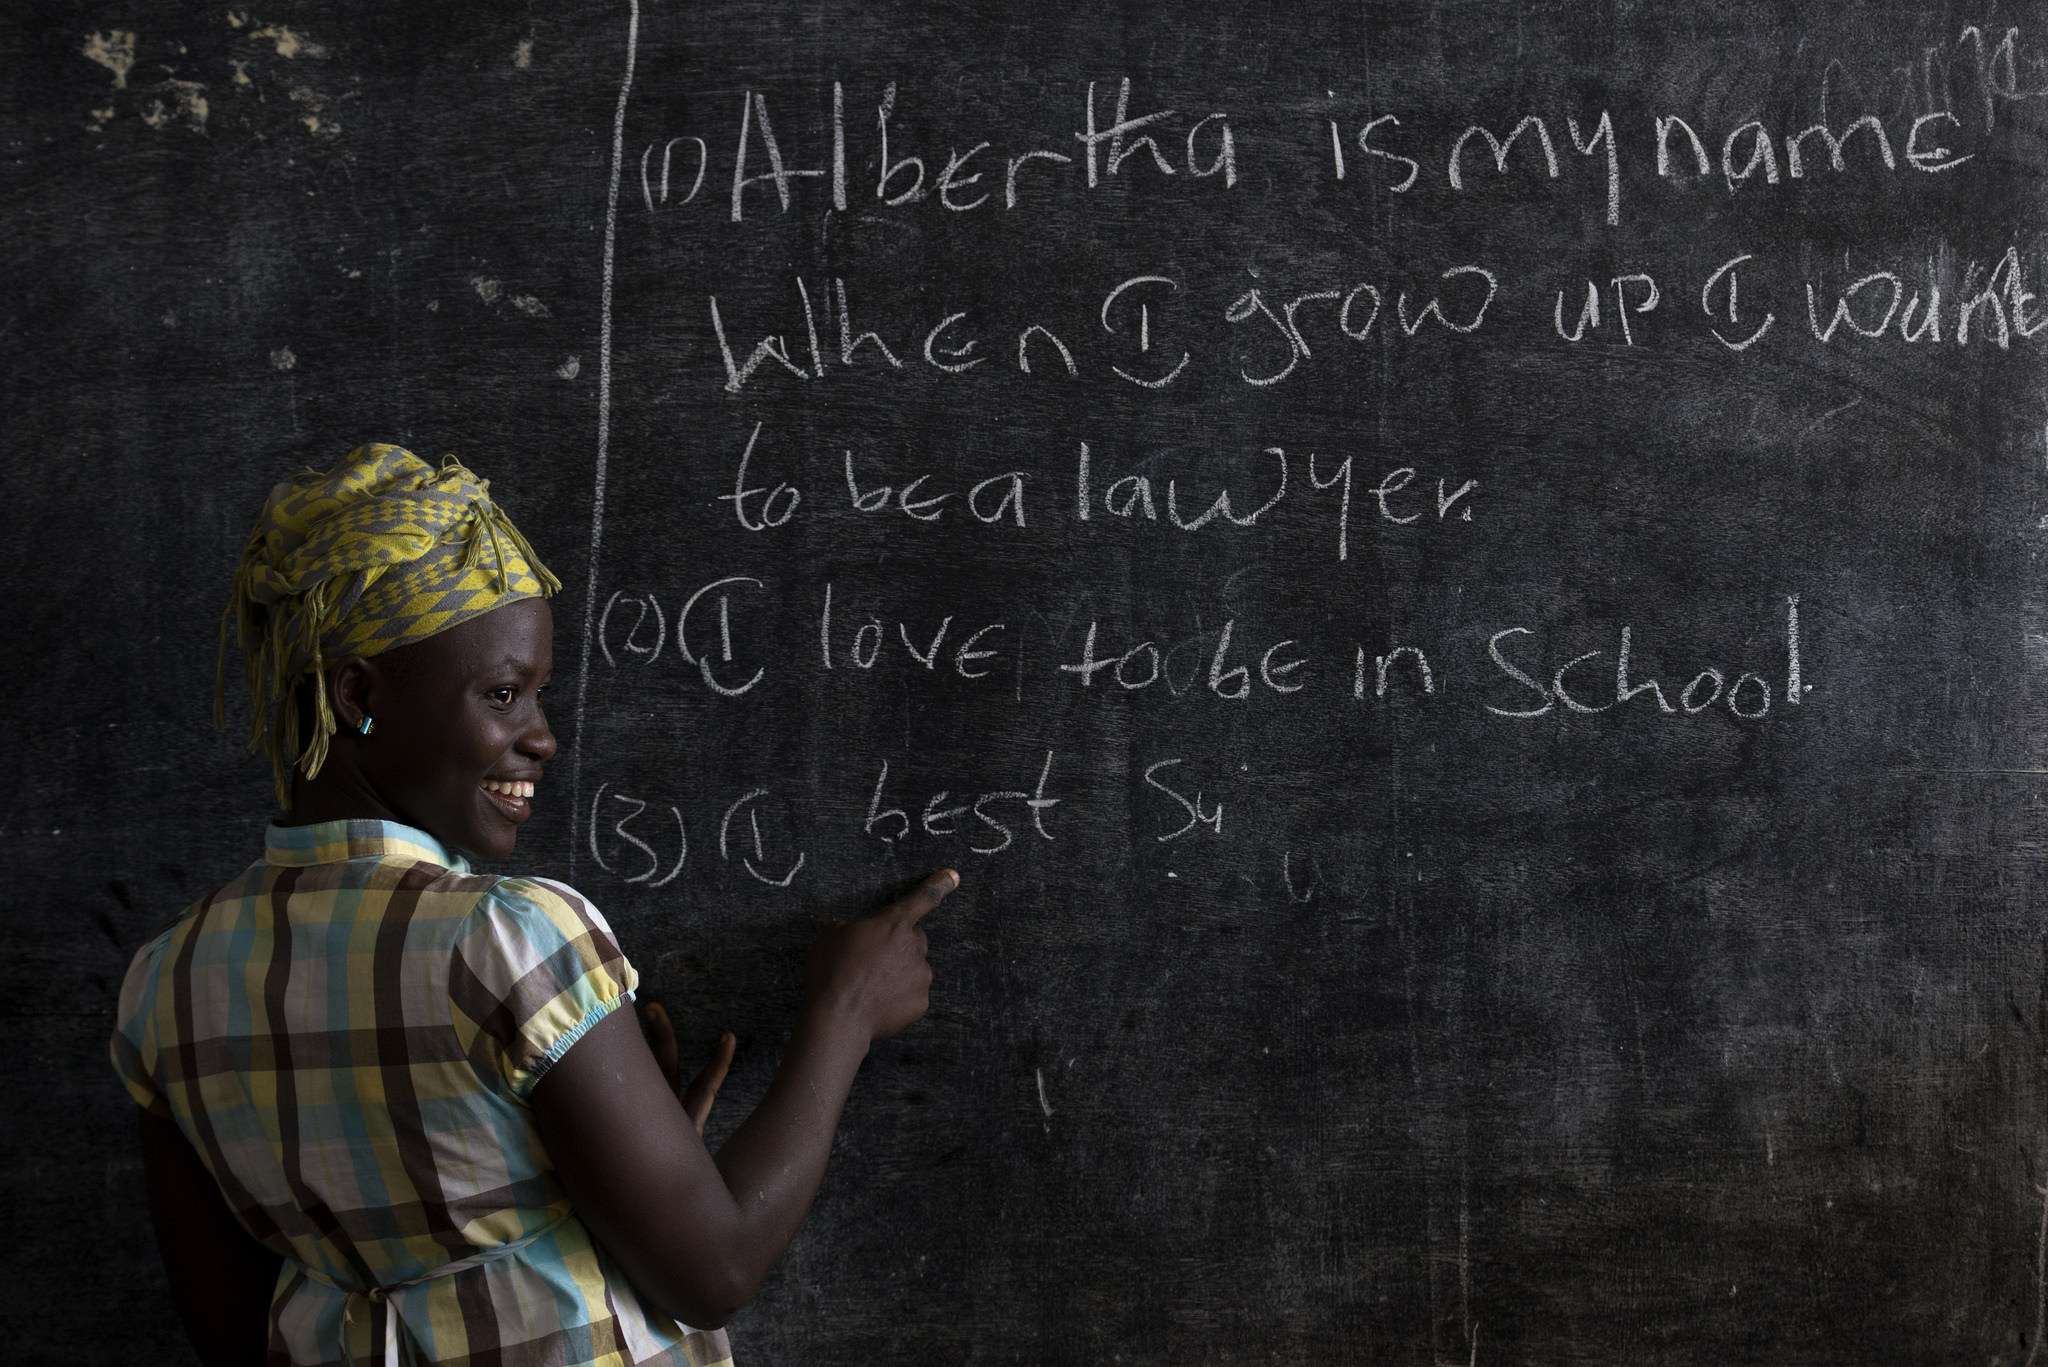 (1) Albertha is my name
When I grow up I want
to be a lawyer.
(2) I love to be in School.
(3) I best Su